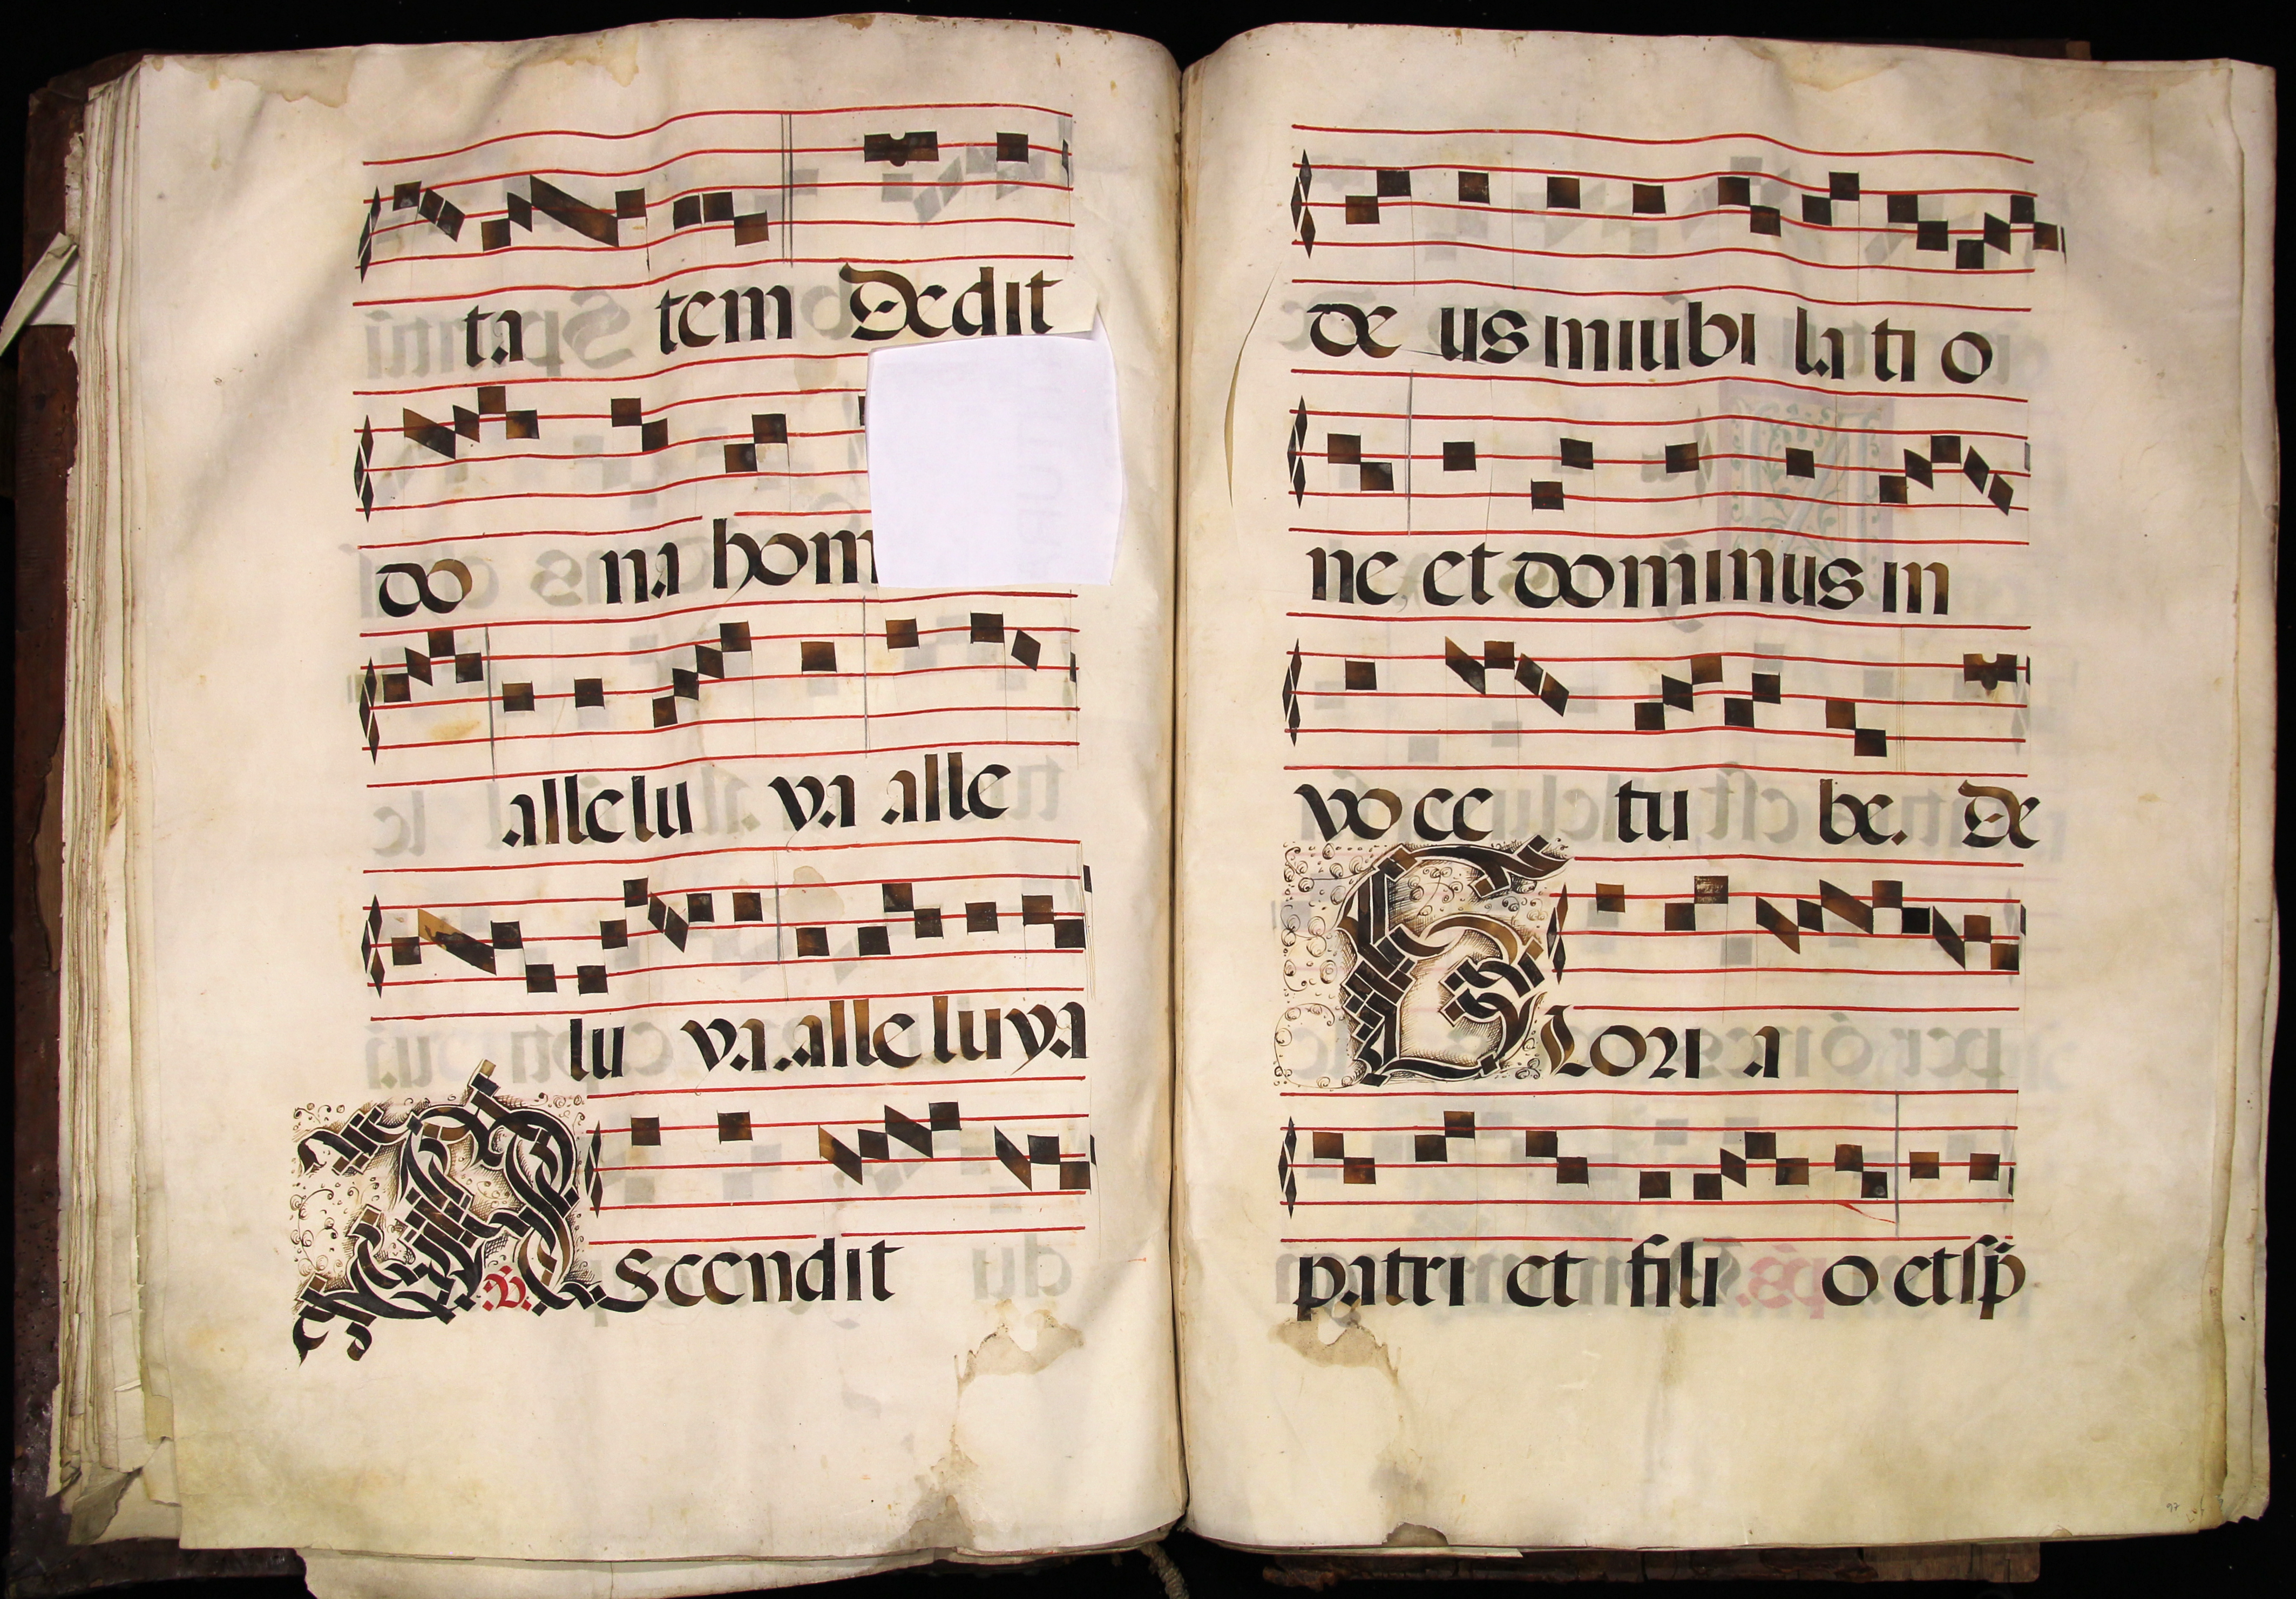 ta tem Dedit
do na hom
allelu ya alle
lu ya. alleluya
V. Ascendit
de us iniubi lati o
ne, et dominus in
voce tu be. De
Gloria
patri et fili o et sp̄
97